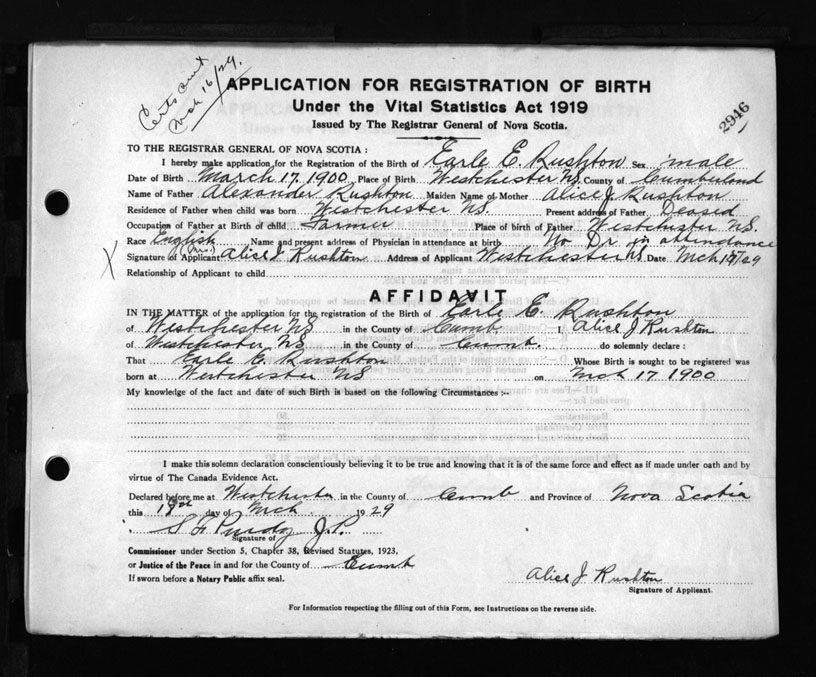 Certs sent
Mch 16/29.
APPLICATION FOR REGISTRATION OF BIRTH
Under the Vital Statistics Act 1919
Issued by The Registrar General of Nova Scotia.
2946
TO THE REGISTRAR GENERAL OF NOVA SCOTIA :
I hereby make application for the Registration of the Birth of Earle E. Rushton Sex male
Date of Birth March 17, 1900 Place of Birth Westchester N.S. County of Cumberland
Name of Father Alexander Rushton Maiden Name of Mother Alice J. Rushton
Residence of Father when child was born Westchester N.S. Present address of Father Deased
Occupation of Father at Birth of child Farmer Place of birth of Father Westchester N.S.
Race English Name and present address of Physician in attendance at birth No Dr in attendance
Signature of Applicant (Mrs) Alice J Rushton Address of Applicant Westchester N.S. Date Mch /29
Relationship of Applicant to child
X
AFFIDAVIT
IN THE MATTER of the application for the registration of the Birth of Earle E. Rushton
of Westchester NS in the County of Cumb I, Alice J. Rushton
of Westchester N.S. in the County of Cumb. do solemnly declare :
That Earle E. Rushton Whose Birth is sought to be registered was
born at Westchester NS on Mch 17 1900
My knowledge of the fact and date of such Birth is based on the following Circumstances :--
I make this solemn declaration conscientiously believing it to be true and knowing that it is of the same force and effect as if made under oath and by
virtue of The Canada Evidence Act.
Declared before me at Westchester in the County of Cumb and Province of Nova Scotia
this day of Mch 1929
Purdy J.P.
Signature of
Commissioner under Section 5, Chapter 38, Revised Statutes, 1923,
or Justice of the Peace in and for the County of Cumb
If sworn before a Notary Public affix seal.
Alice J Rushton
Signature of Applicant.
For Information respecting the filling out of this Form, see Instructions on the reverse side.